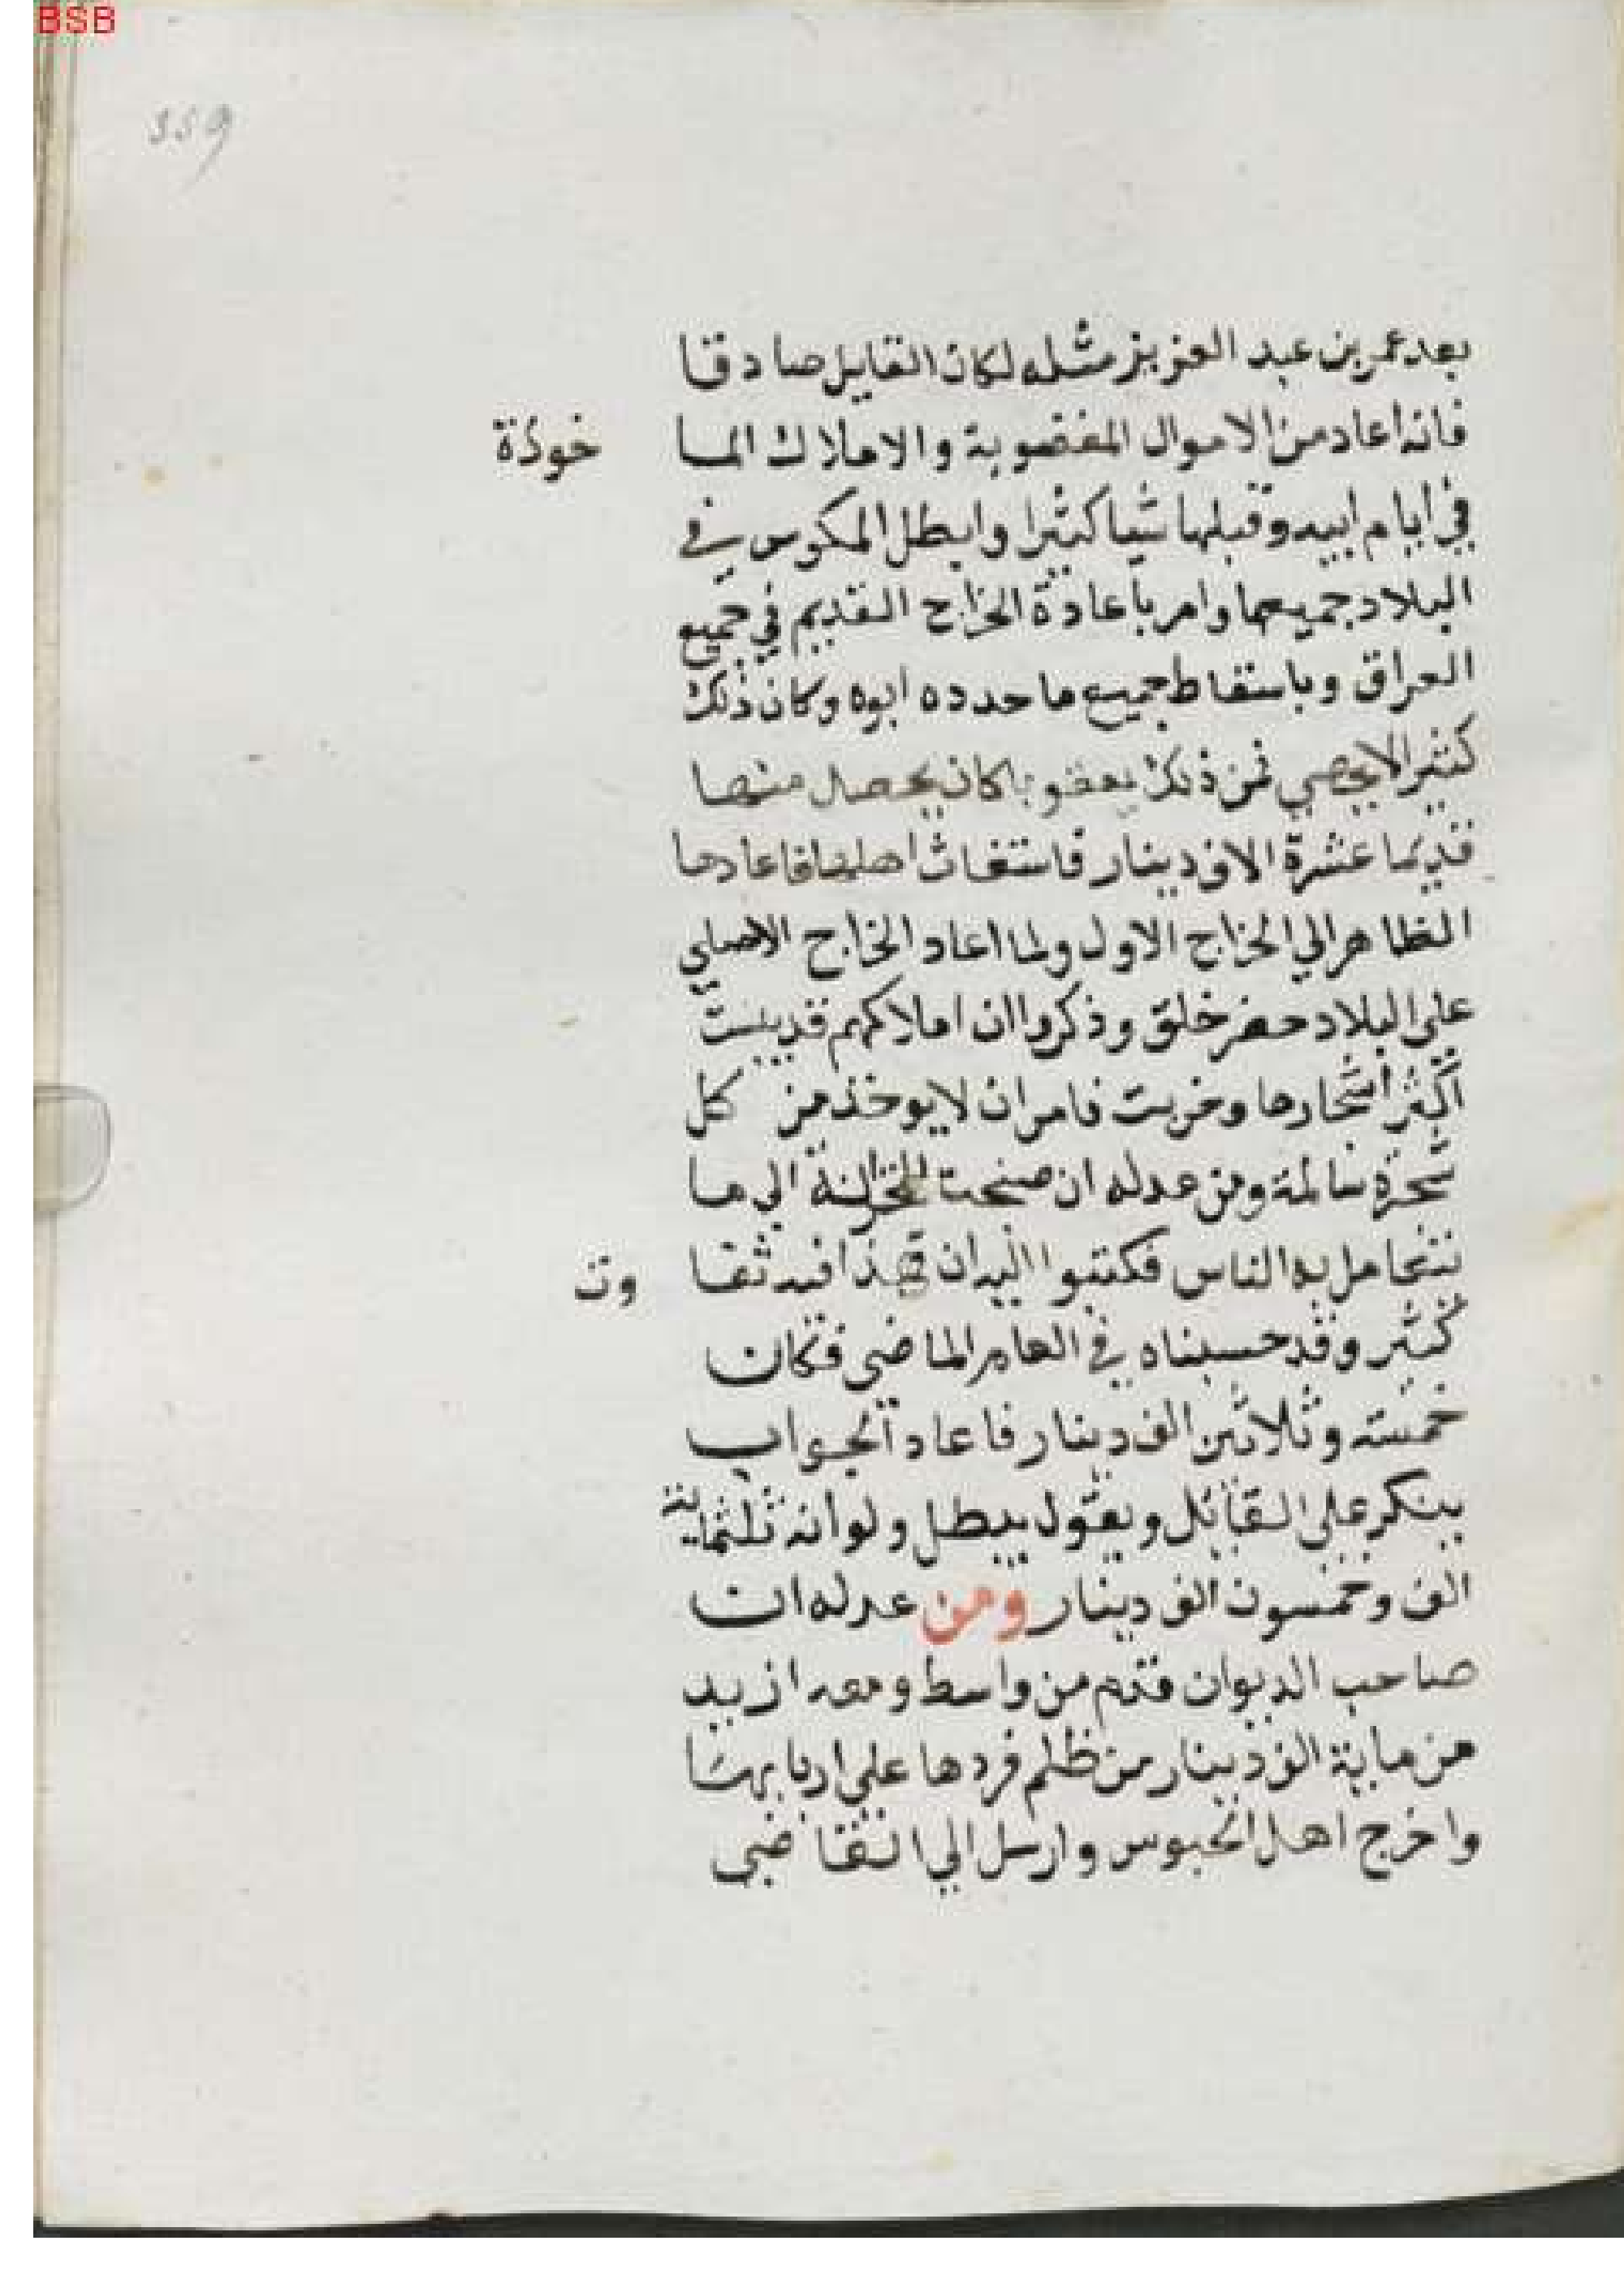 BSB
359
بعد عمر بن عبد العزيز مثله لكان القايل صادقا
فانه اعاد من الاموال المغصوبة والاملاك الما خوذة
في ايام ابيه وقبلها شيا كثيرا وابطل المكوس في
البلاد جميعها وامر باعادة الخراج القديم في جميع
العراق وباسقاط جميع ما جدده ابوه وكان ذلك
كثيرا لا يحصي فمن ذلك يعقوبا كان يحصل منها
قديما عشرة الاف دينار فاستغاث اهلها فاعادها
الظاهر الي الخراج الاول ولما اعاد الخراج الاصلي
علي البلاد حضر خلق وذكروا ان املاكهم قد يبست
اكثر اشجارها وخربت فامر ان لا يوخذ من كل
شجرة سالمة ومن عدله ان صنجت للخزانة الي ما
تتعامل به الناس فكتبوا اليه ان هذا فيه تفا وت
كثير وقد حسبناه في العام الماضي فكان
خمسة وثلاثين الف دينار فاعاد الجواب
ينكر علي القائل ويقول يبطل ولو انه ثلثماية
الف وخمسون الف دينار ومن عدله ان
صاحب الديوان قدم من واسط ومعه ازيد
من ماية الف دينار من ظلم فردها علي اربابها
واخرج اهل الحبوس وارسل الي القاضي